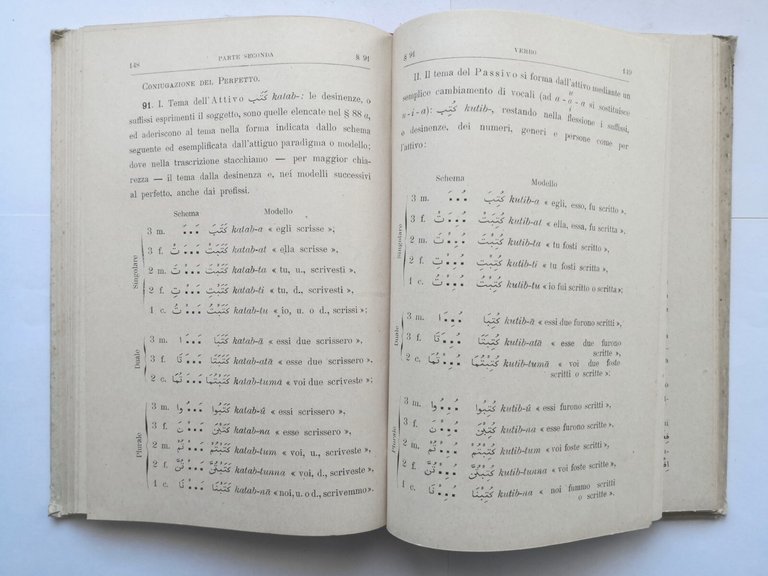 148 PARTE SECONDA § 91
CONIUGAZIONE DEL PERFETTO.
91. I. Tema dell'Attivo كَتَبَ katab-: le desinenze, o
suffissi esprimenti il soggetto, sono quelle elencate nel § 88 a,
ed aderiscono al tema nella forma indicata dallo schema
seguente ed esemplificata dall'attiguo paradigma o modello;
dove nella trascrizione stacchiamo — per maggior chia-
rezza — il tema dalla desinenza e, nei modelli successivi
al perfetto. anche dai prefissi.
Schema Modello
Singolare
3 m. كَتَبَ katab-a « egli scrisse »,
3 f. ـَـَـَتْ كَتَبَتْ katab-at « ella scrisse »,
2 m. ـَـَـْتَ كَتَبْتَ katab-ta « tu, u., scrivesti »,
2 f. ـَـَـْتِ كَتَبْتِ katab-ti « tu, d., scrivesti »,
1 c. ـَـَـْتُ كَتَبْتُ katab-tu « io, u. o d., scrissi »;
Duale
3 m. ـَـَـَا كَتَبَا katab-ā « essi due scrissero »,
3 f. ـَـَـَتَا كَتَبَتَا katab-atā « esse due scrissero »,
2 c. ـَـَـْتُمَا كَتَبْتُمَا katab-tumā « voi due scriveste »;
Plurale
3 m. ـَـَـُوا كَتَبُوا katab-ū « essi scrissero »,
3 f. ـَـَـْنَ كَتَبْنَ katab-na « esse scrissero »,
2 m. ـَـَـْتُمْ كَتَبْتُمْ katab-tum « voi, u., scriveste »,
2 f. ـَـَـْتُنَّ كَتَبْتُنَّ katab-tunna « voi, d., scriveste »,
1 c. ـَـَـْنَا كَتَبْنَا katab-nā « noi, u. o d., scrivemmo ».
§ 91 VERBO 149
II. Il tema del Passivo si forma dall'attivo mediante un
semplice cambiamento di vocali (ad a - a - a si sostituisce
u - i - a): كُتِبَ kutib-, restando nella flessione i suffissi,
e desinenze, dei numeri, generi e persone come per
l'attivo:
Schema Modello
Singolare
3 m. كُتِبَ kutib-a « egli, esso, fu scritto »,
3 f. ـُـِـَتْ كُتِبَتْ kutib-at « ella, essa, fu scritta »,
2 m. ـُـِـْتَ كُتِبْتَ kutib-ta « tu fosti scritto »,
2 f. ـُـِـْتِ كُتِبْتِ kutib-ti « tu fosti scritta »,
1 c. ـُـِـْتُ كُتِبْتُ kutib-tu « io fui scritto o scritta »;
Duale
3 m. ـُـِـَا كُتِبَا kutib-ā « essi due furono scritti »,
3 f. ـُـِـَتَا كُتِبَتَا kutib-atā « esse due furono
scritte »,
2 c. ـُـِـْتُمَا كُتِبْتُمَا kutib-tumā « voi due foste
scritti o scritte »;
Plurale
3 m. ـُـِـُوا كُتِبُوا kutib-ū « essi furono scritti »,
3 f. ـُـِـْنَ كُتِبْنَ kutib-na « esse furono scritte »,
2 m. ـُـِـْتُمْ كُتِبْتُمْ kutib-tum « voi foste scritti »,
2 f. ـُـِـْتُنَّ كُتِبْتُنَّ kutib-tunna « voi foste scritte »,
1 c. ـُـِـْنَا كُتِبْنَا kutib-na « noi fummo scritti
o scritte ».